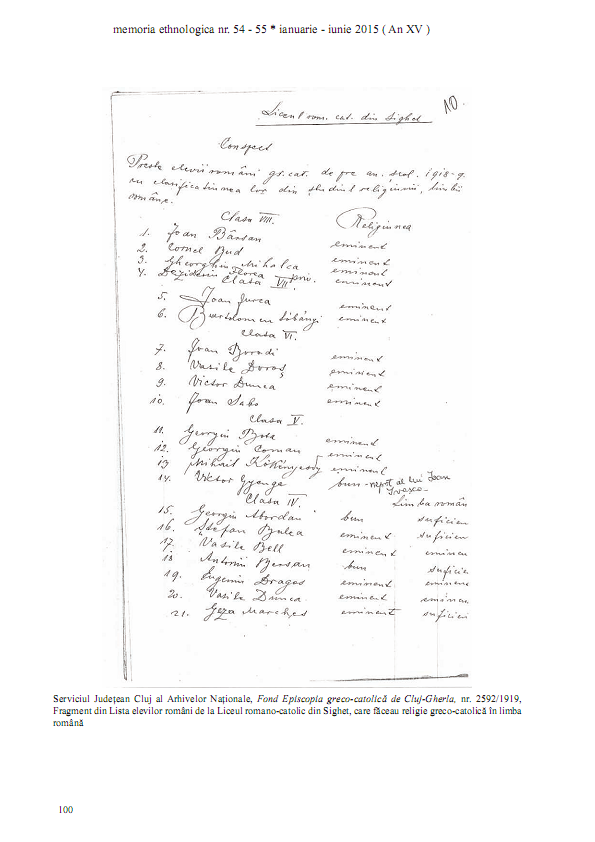 memoria ethnologica nr. 54 - 55 * ianuarie - iunie 2015 ( An XV )
10.
Liceul rom. cat. din Sighet
Conspect
Peste elevii români gr. cat. de pre an. școl. 1918-9.
cu clasificațiunea lor din studiul religiunii, limbii
române.
Clasa VIII. Religiunea
1. Joan Bârsan eminent
2. Cornel Bud eminent
3. Gheorghiu Mihalca eminent
4. Deziderìu Florea priv. eminent
Clasa VII
5. Joan Jurca eminent
6. eminent
Clasa VI.
7. Joan Borodi eminent
8. Vasile Doroș eminent
9. Victor Dunca eminent
10. Joan Sabo eminent
Clasa V.
11. Georgiu eminent
12. Georgiu Coman eminent
13 Mihail Kökényesdy eminent
14. Victor Gyenge bun - nepot al lui Ioan
Clasa IV. Limba român
15. Georgiu bun suficien
16. Ștefan Bulea eminent suficien
17. Vasile Bell eminent eminen
18 Antoniu Bersan bun suficien
19. Eugeniu Dragoș eminent eminene
20. Vasile Dunca eminent eminen
21. Geza Marcheș eminent suficien
Serviciul Județean Cluj al Arhivelor Naționale, Fond Episcopia greco-catolică de Cluj-Gherla, nr. 2592/1919,
Fragment din Lista elevilor români de la Liceul romano-catolic din Sighet, care făceau religie greco-catolică în limba
română
100